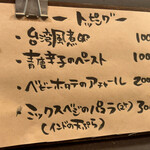 ートッピングー
・台湾風煮卵 100
・青唐辛子のペースト 100
・ベビーホタテのアチャール 200
・ミックスベジのパコラ(2ケ) 30
(インドの天ぷら)